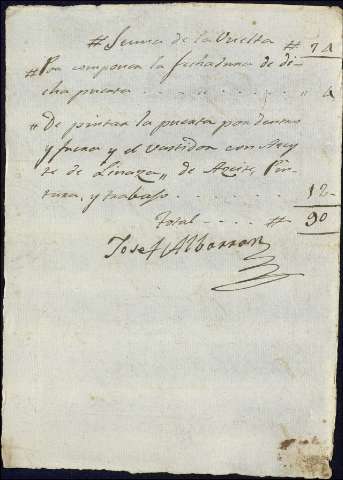 # Suma de la Vuelta # 74
# Por componer la fechadura de di-
cha puerta . . . . . . . . " 4
" De pintar la puerta por dentro
y fuera y el vastidor con Azey-
te de Linaza " de Azeite, Pin-
tura, y trabajo . . . . . . 12
total . . . . # 90
Josef Albarran